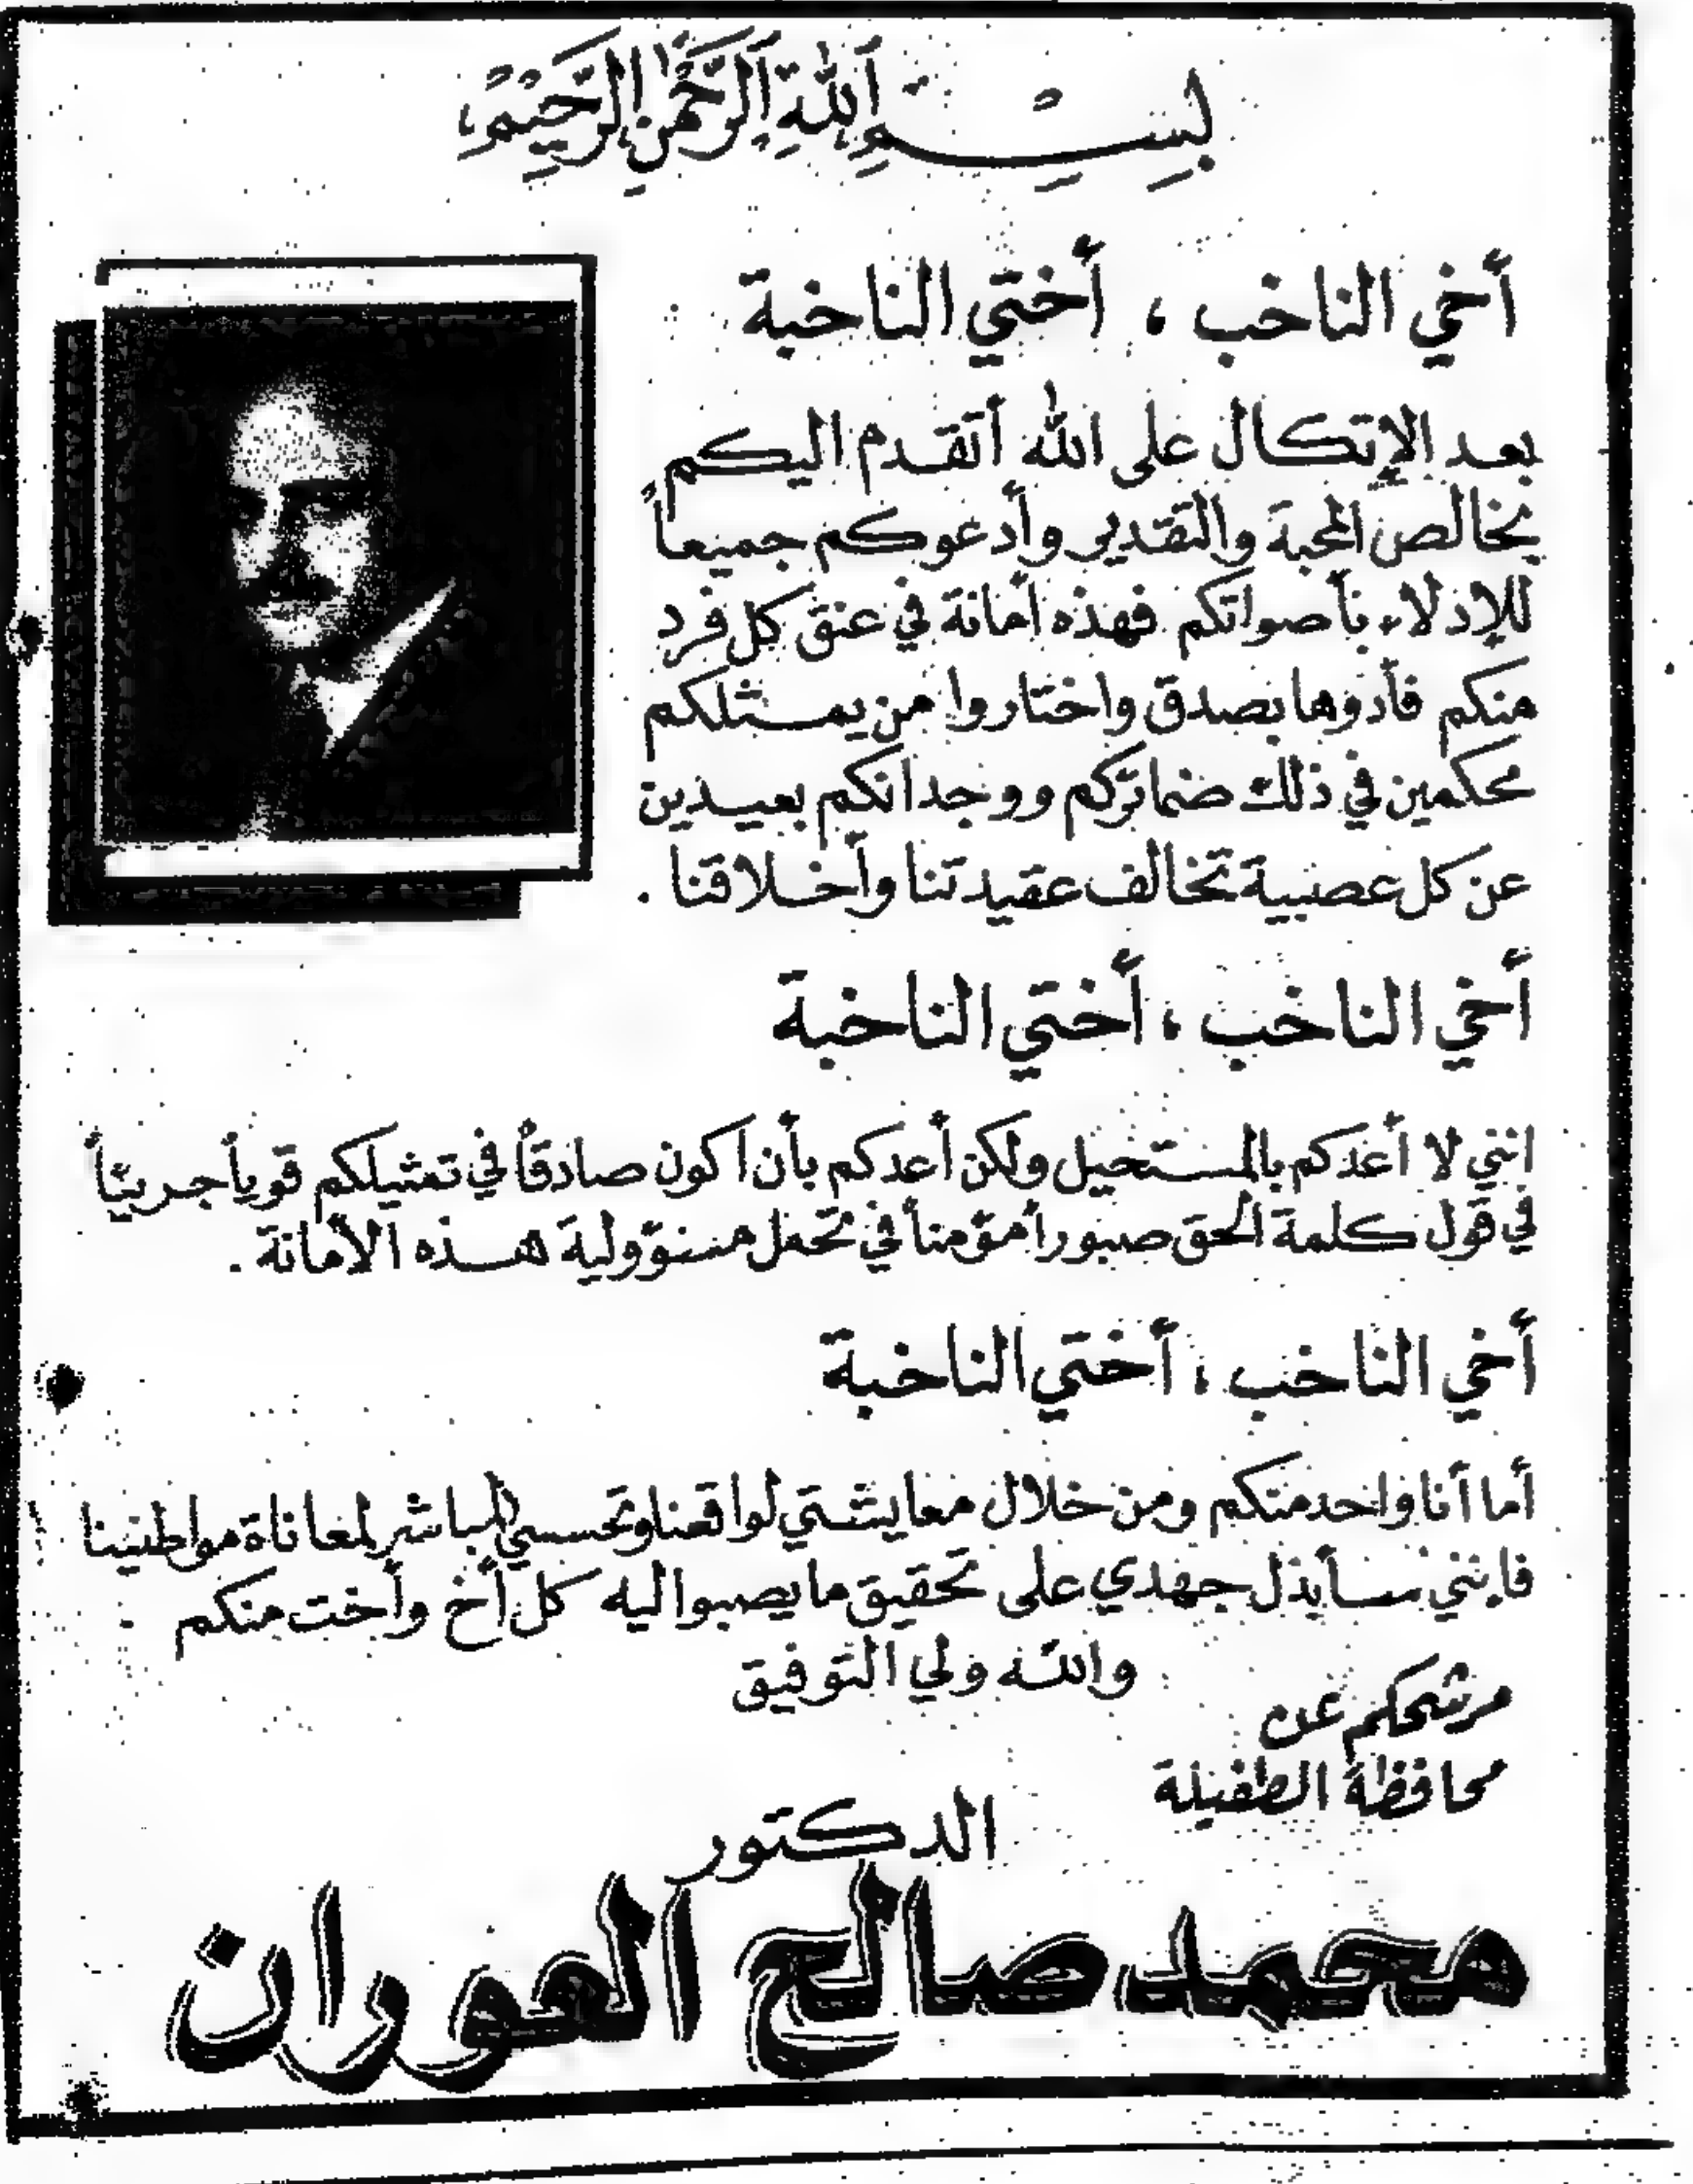 بسم الله الرحمن الرحيم
أخي الناخب ، أختي الناخبة
بعد الإتكال على الله أتقدم اليكم
بخالص المحبة والتقدير وأدعوكم جميعاً
للإدلاء بأصواتكم فهذه أمانة في عنق كل فرد
منكم فأدوها بصدق واختاروا من يمثلكم
محكمين في ذلك ضمائركم ووجدانكم بعيدين
عن كل عصبية تخالف عقيدتنا وأخلاقنا .
أخي الناخب ، أختي الناخبة
انني لا أعدكم بالمستحيل ولكن أعدكم بأن اكون صادقاً في تمثيلكم قوياً جريئاً
في قول كلمة الحق صبوراً مؤمناً في تحمل مسؤولية هذه الأمانة .
أخي الناخب ، أختي الناخبة
أما أنا واحد منكم ومن خلال معايشتي لواقعنا وتحسسي المباشر لمعاناة مواطنينا
فإنني سأبذل جهدي على تحقيق ما يصبوا اليه كل أخ وأخت منكم
والله ولي التوفيق
مرشحكم عن
محافظة الطفيلة
الدكتور
محمد صالح العوران